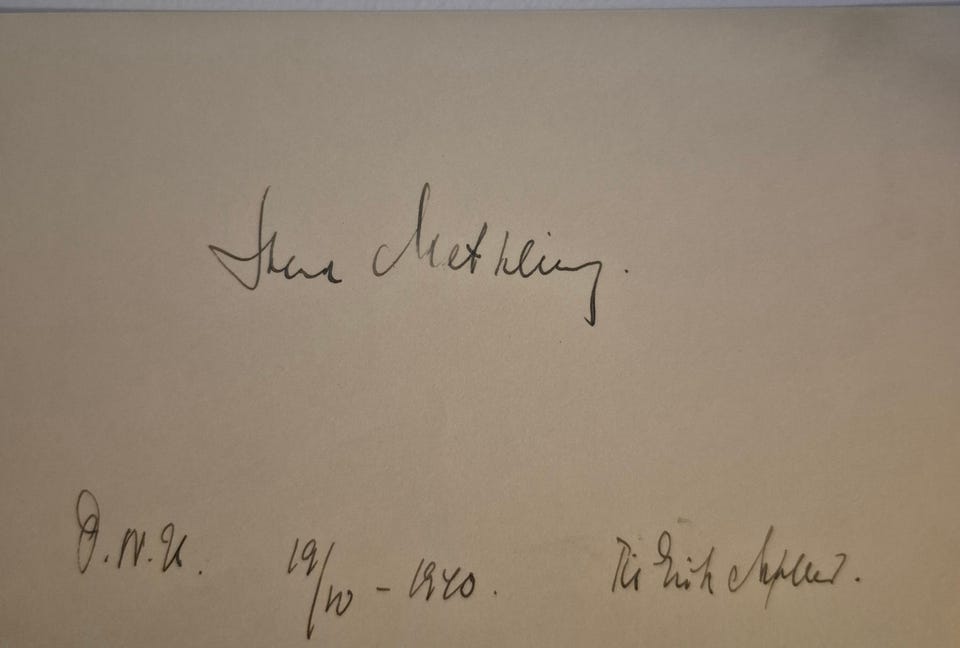 Svend Methling.
D.N.K. 19/10 - 1940. Til Erik